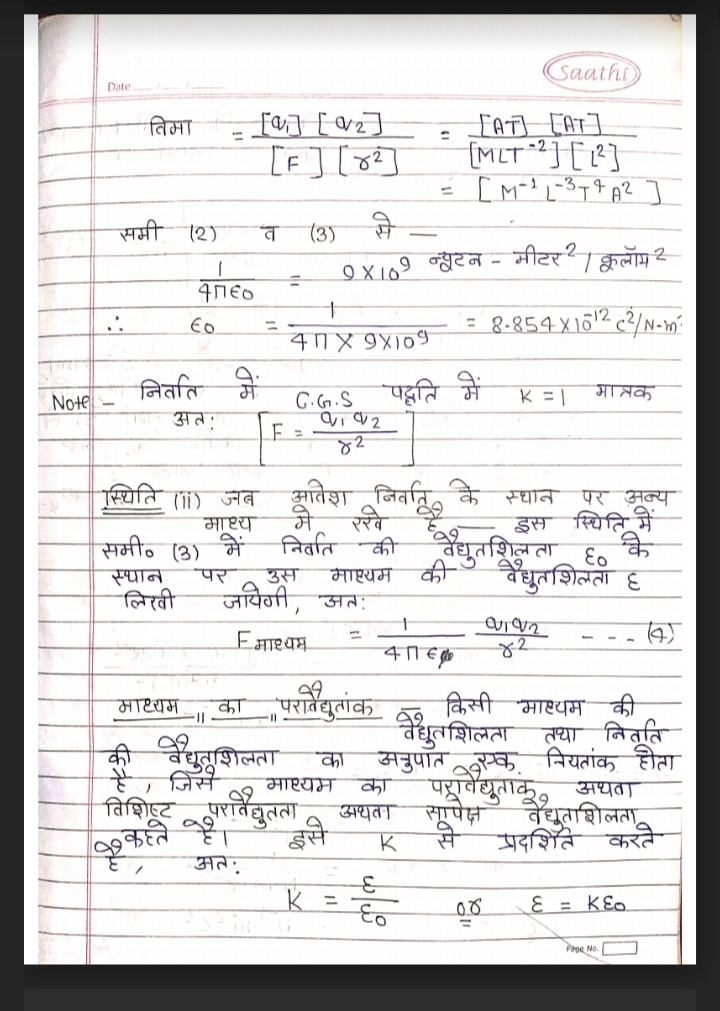 Saathi
Date
विमा = [q₁] [q₂] / [F] [r²] = [AT] [AT] / [MLT⁻²] [L²]
= [M⁻¹ L⁻³ T⁴ A²]
समी (2) व (3) से —
1 / 4πϵ₀ = 9×10⁹ न्यूटन - मीटर² / कूलॉम²
∴ ϵ₀ = 1 / 4π × 9×10⁹ = 8.854×10⁻¹² C²/N-m²
Note - निर्वात में C.G.S पद्दति में K = 1 मात्रक
अत: [F = q₁q₂ / r²]
स्थिति (ii) जब आवेश निर्वात के स्थान पर अन्य
माध्य में रखे है — इस स्थिति में
समी० (3) में निर्वात की वैद्युतशिलता ε₀ के
स्थान पर उस माध्यम की वैद्युतशिलता ε
लिखी जायेगी, अत:
F माध्यम = 1 / 4πϵ q₁q₂ / r² - - - (4)
माध्यम का परावैद्युतांक — किसी माध्यम की
वैद्युतशिलता तथा निर्वात
की वैद्युतशिलता का अनुपात एक नियतांक होता
है, जिसे माध्यम का परावैद्युतांक अथवा
विशिष्ट परावैद्युतता अथवा सापेक्ष वैद्युतशिलता
कहते है। इसे K से प्रदर्शित करते
है, अत:
K = ε / ε₀ or ε = Kε₀
Page No.